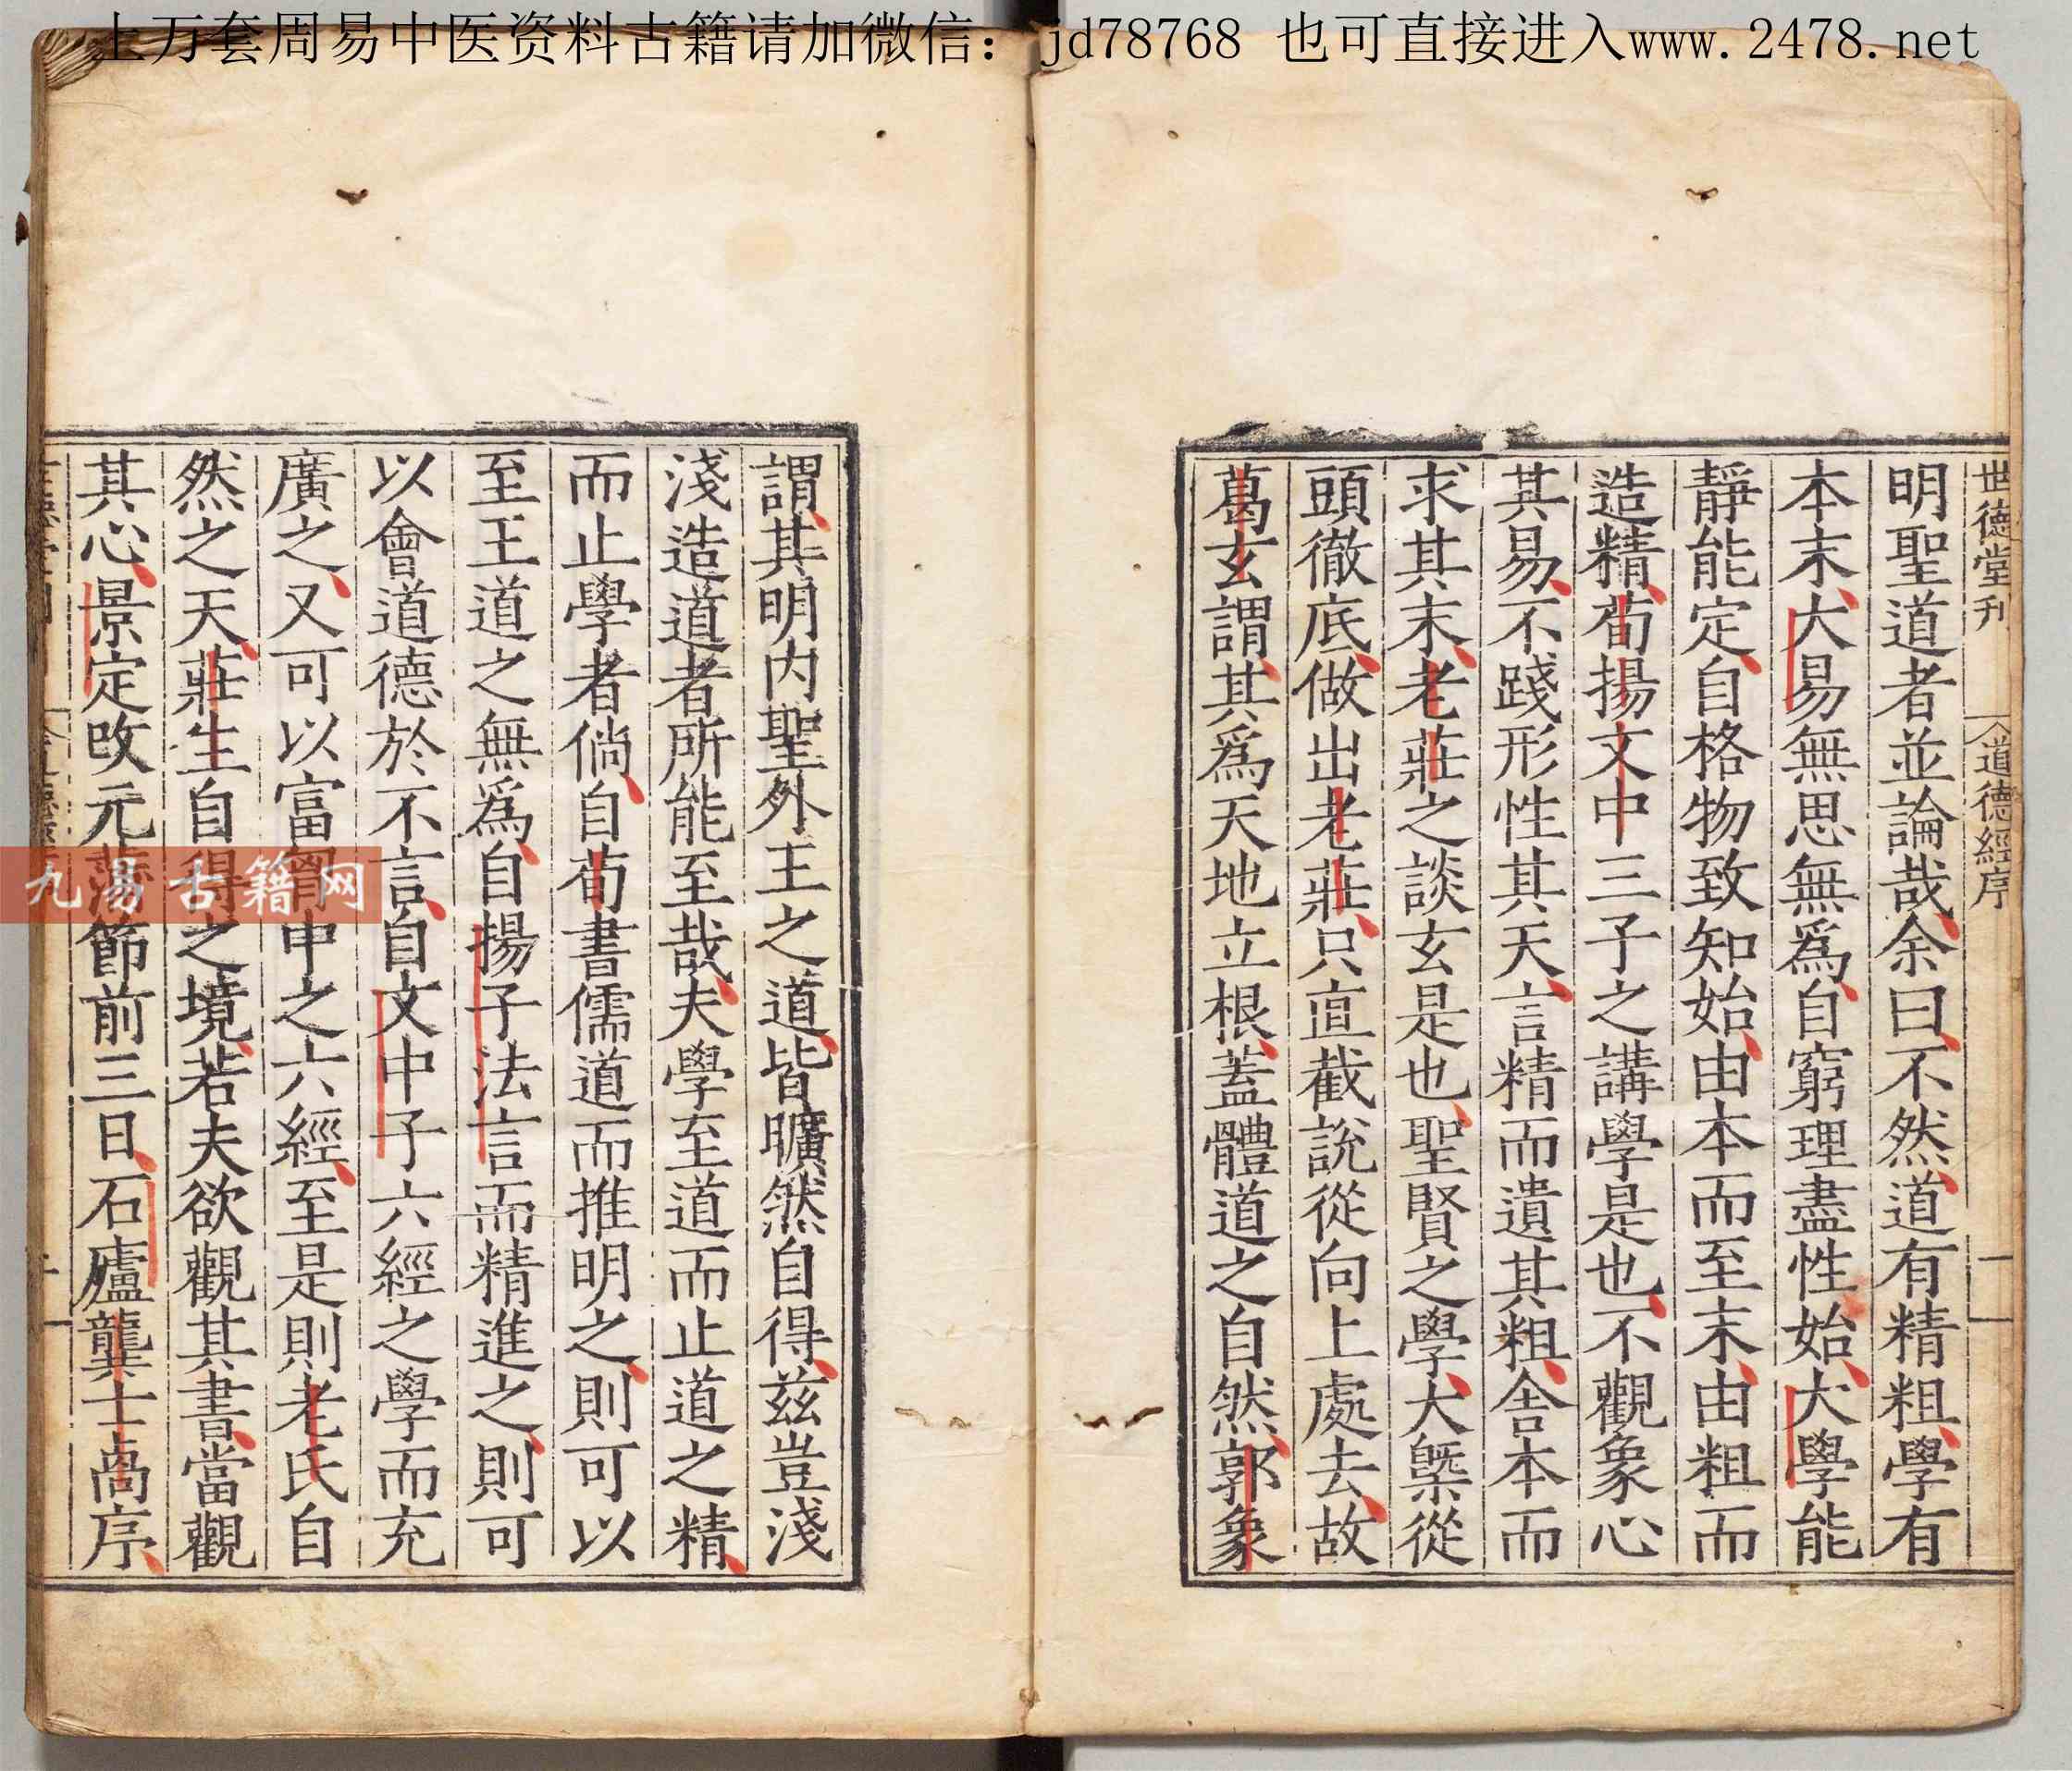 上万套周易中医资料古籍请加微信：jd78768 也可直接进入www.2478.net
世德堂刊 道德經序 一
明聖道者並論哉余曰不然道有精粗學有
本末大易無思無爲自窮理盡性始大學能
靜能定自格物致知始由本而至末由粗而
造精荀揚文中三子之講學是也不觀象心
其易不踐形性其天言精而遺其粗舍本而
求其末老莊之談玄是也聖賢之學大槩從
頭徹底做出老莊只直截說從向上處去故
葛玄謂其爲天地立根蓋體道之自然郭象
謂其明内聖外王之道皆曠然自得兹豈淺
淺造道者所能至哉夫學至道而止道之精
而止學者倘自荀書儒道而推明之則可以
至王道之無爲自揚子法言而精進之則可
以會道德於不言自文中子六經之學而充
廣之又可以富胷中之六經至是則老氏自
然之天莊生自得之境若夫欲觀其書當觀
其心景定改元節前三日石廬龔士卨序
九易古籍网